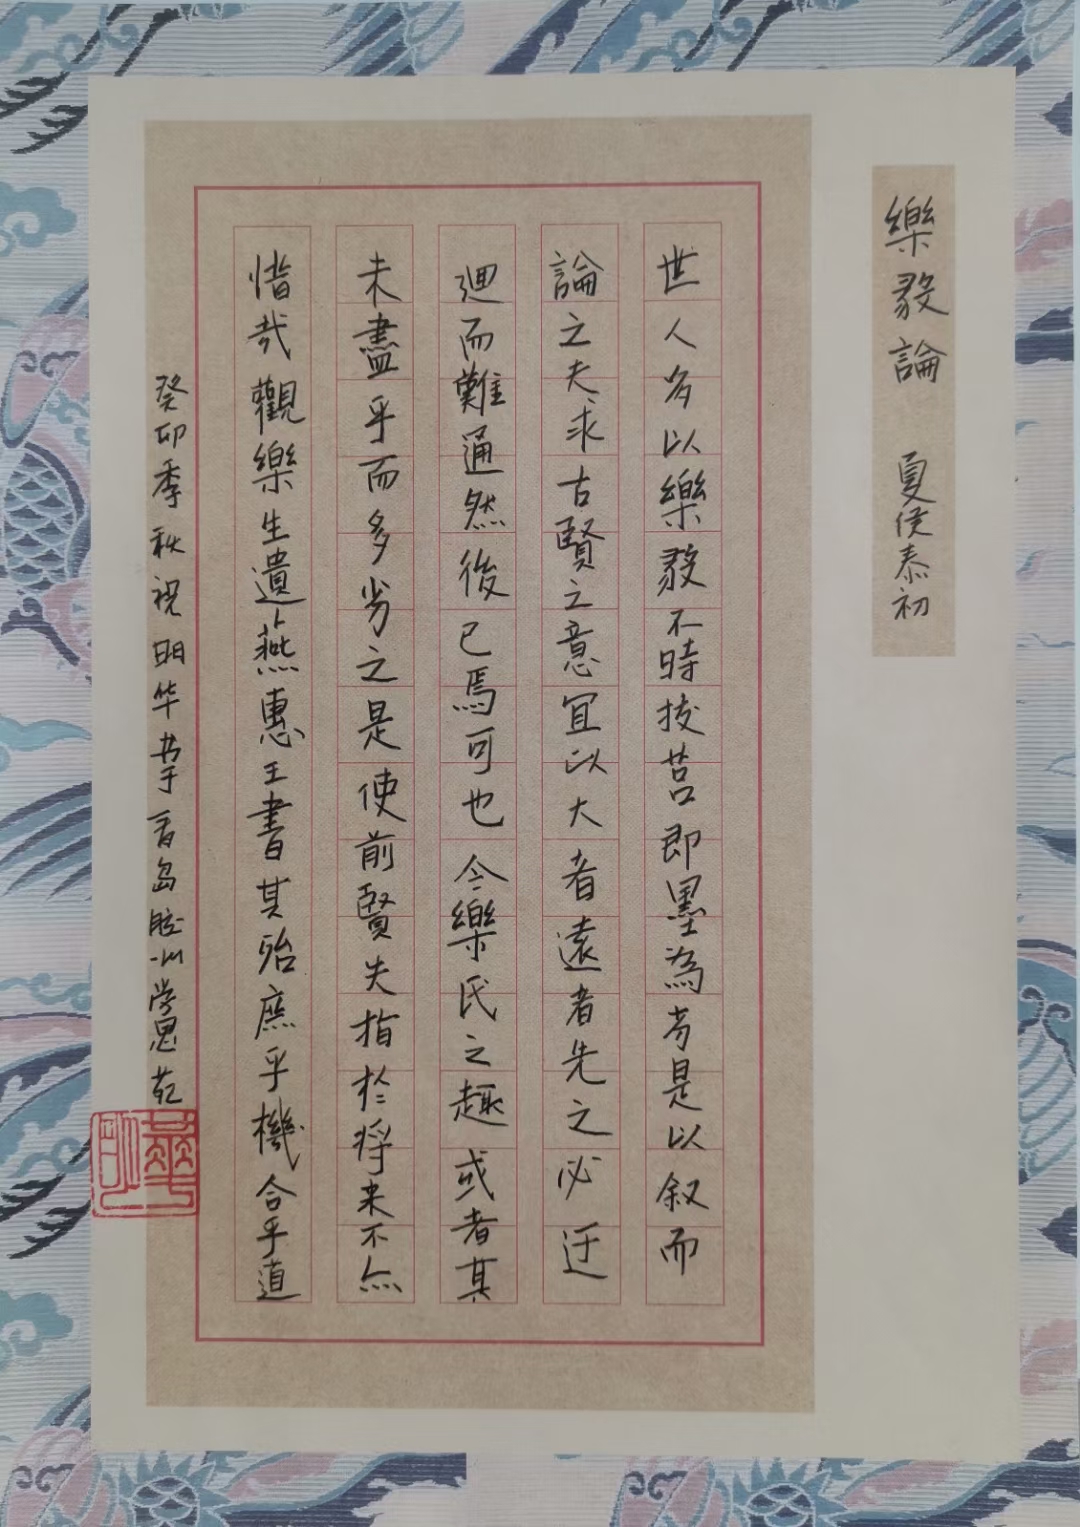 樂毅論 夏侯泰初
世人多以樂毅不時拔莒即墨為劣是以叙而
論之夫求古賢之意宜以大者遠者先之必迂
迴而難通然後已焉可也今樂氏之趣或者其
未盡乎而多劣之是使前賢失指於将来不亦
惜哉觀樂生遺燕惠王書其殆庶乎機合乎道
癸卯季秋祝明华书于青岛胶州学思苑